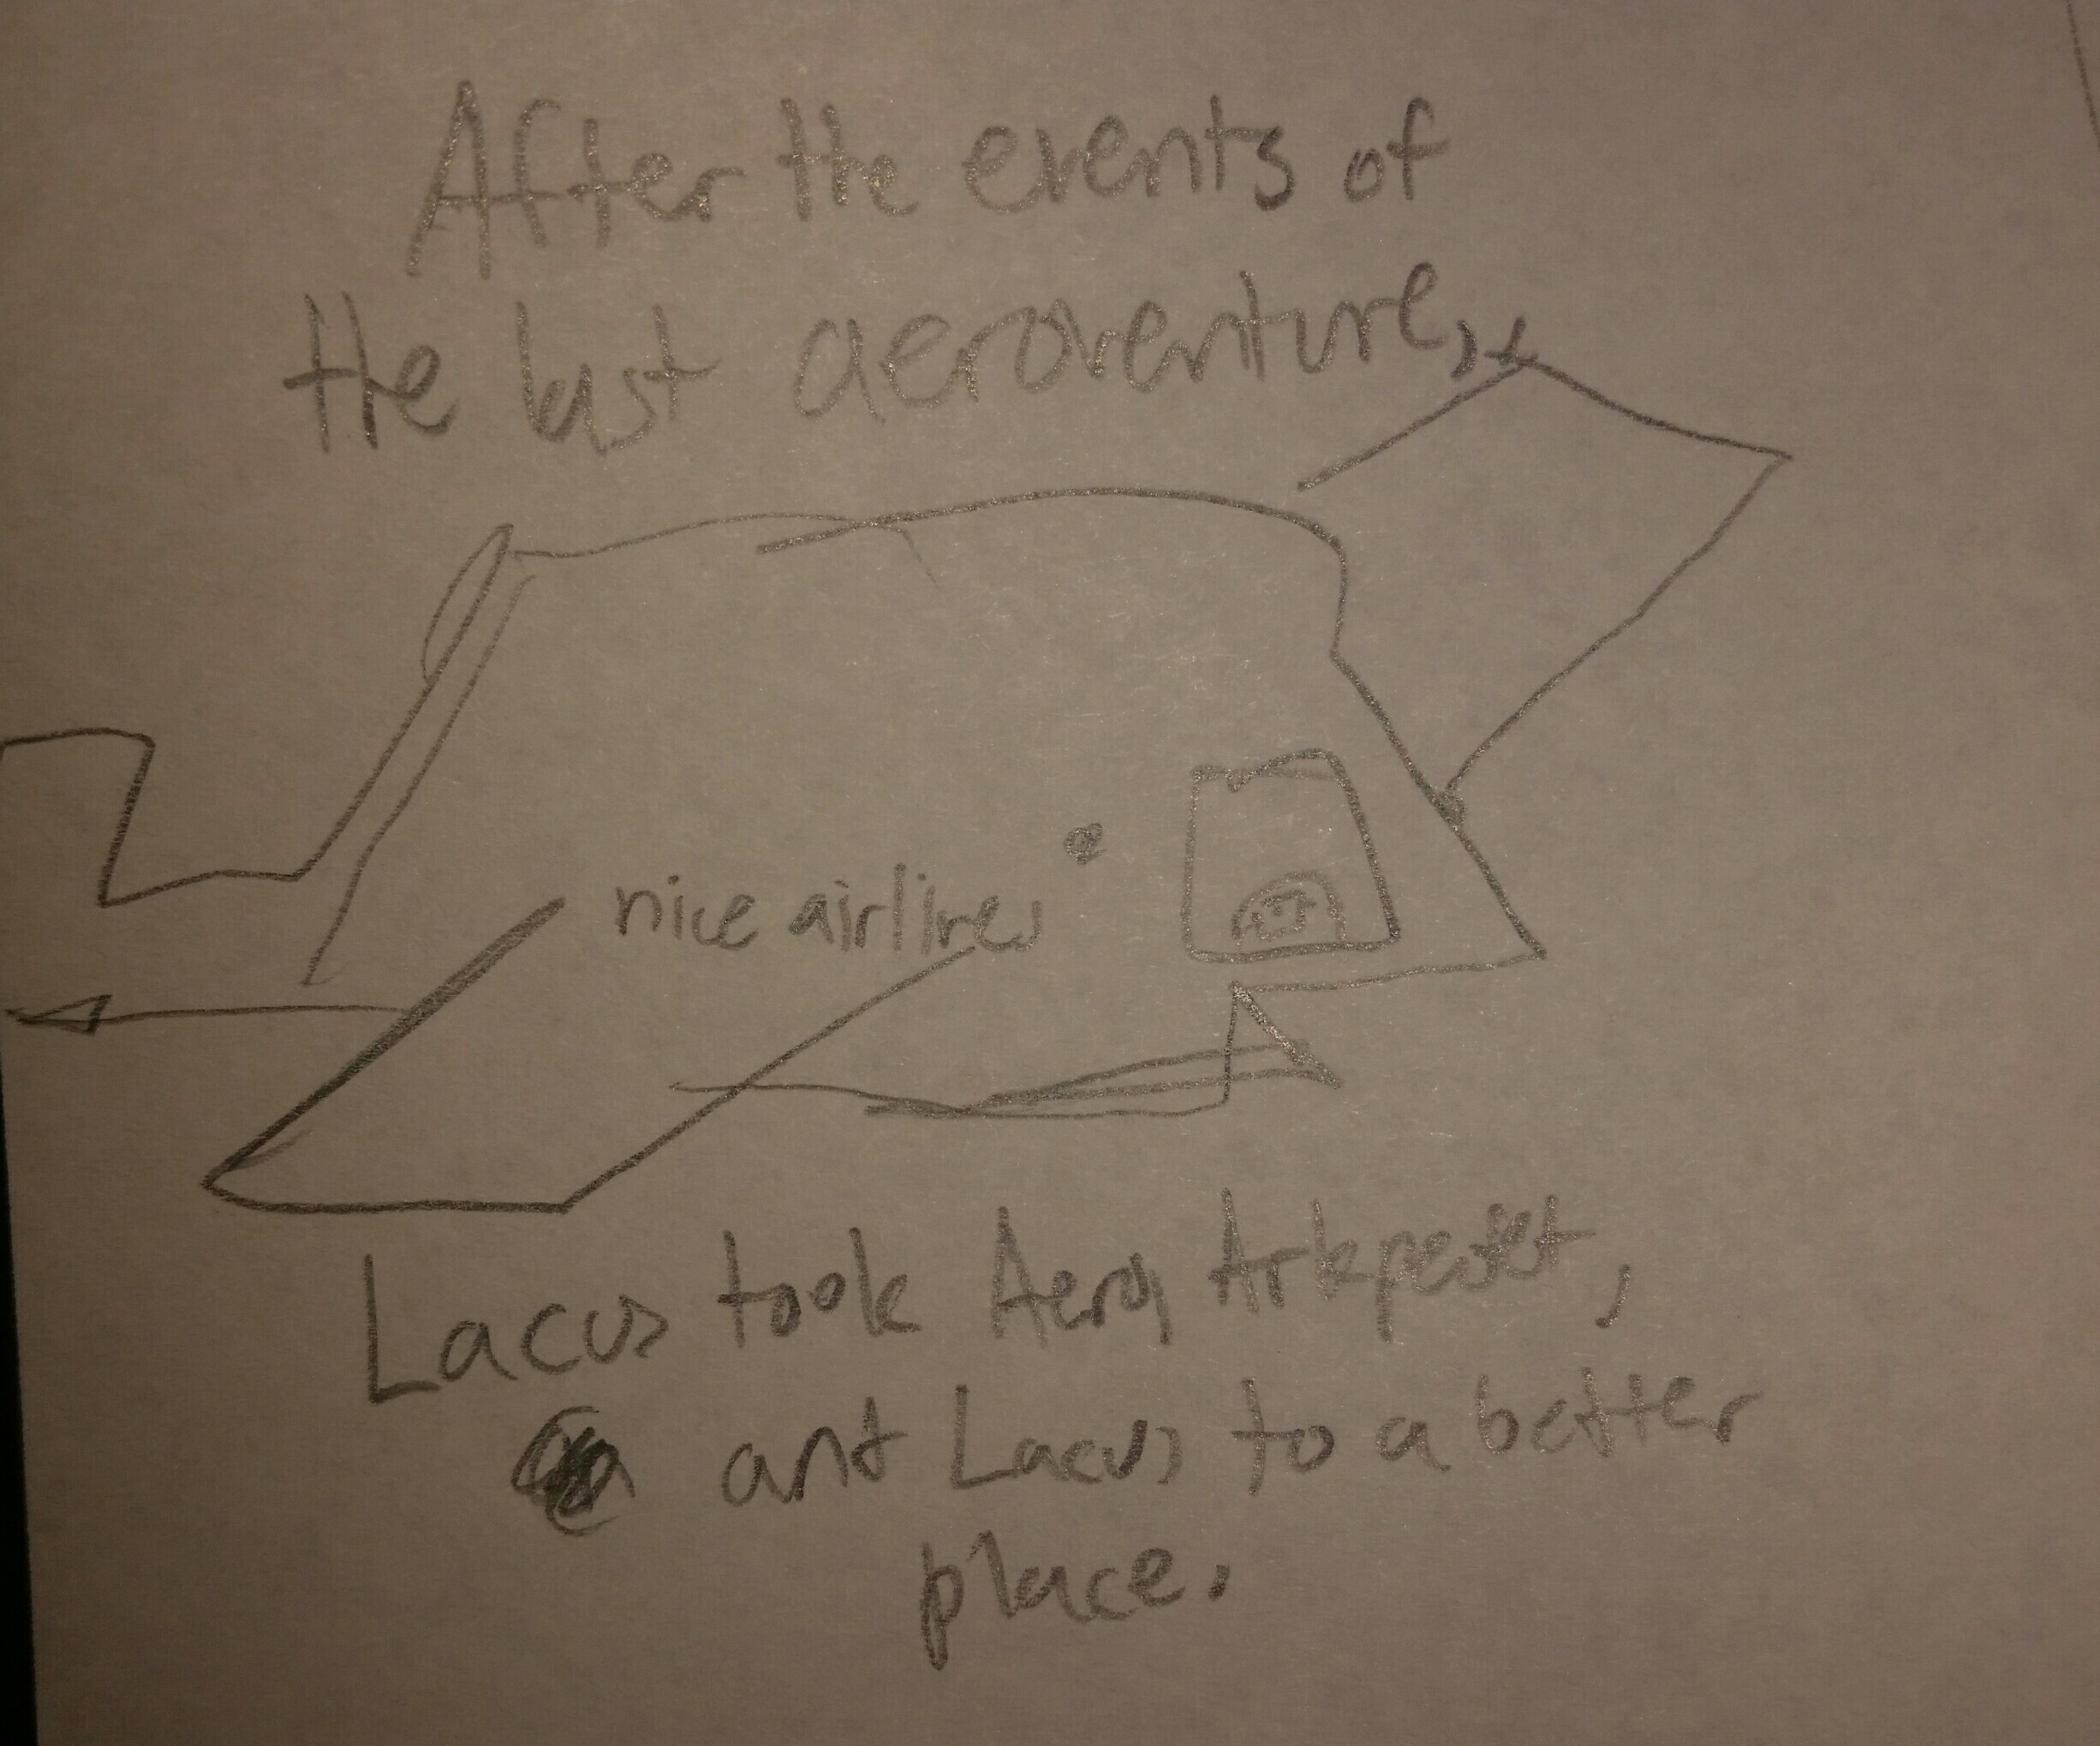 After the events of
the last aeroventure,
nice airlines
Lacus took Aero,
ant Lacus to a better
place.